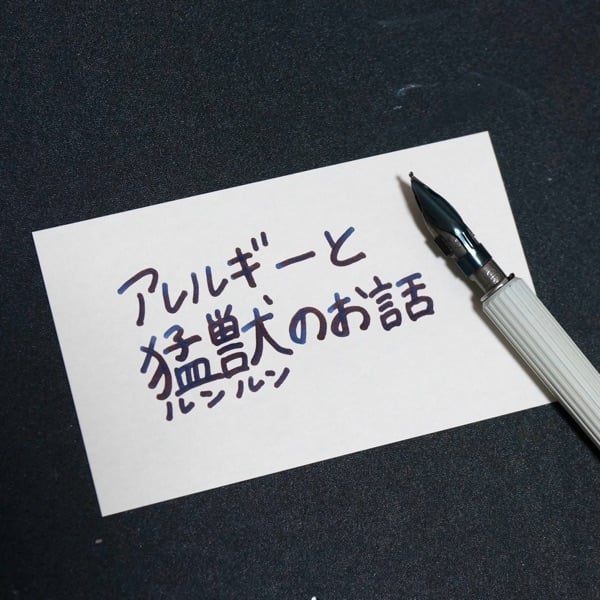 アレルギーと
猛獣のお話
ルンルン